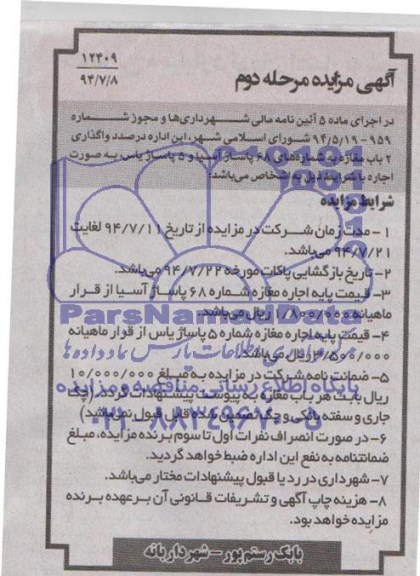 ۱۲۴۰۹
۹۴/۷/۸
آگهی مزایده مرحله دوم
در اجرای ماده ۵ آئین نامه مالی شهرداری‌ها و مجوز شماره
۹۵۹-۹۴/۵/۱۹ شورای اسلامی شهر، این اداره درصدد واگذاری
۲ باب مغازه به شماره‌های ۶۸ پاساژ آسیا و ۵ پاساژ یاس به صورت
اجاره با شرایط ذیل به اشخاص می‌باشد:
شرایط مزایده
۱- مدت زمان شرکت در مزایده از تاریخ ۹۴/۷/۱۱ لغایت
۹۴/۷/۲۱ می‌باشد.
۲- تاریخ بازگشایی پاکات مورخه ۹۴/۷/۲۲ می‌باشد.
۳- قیمت پایه اجاره مغازه شماره ۶۸ پاساژ آسیا از قرار
ماهیانه ۱/۸۰۰/۰۰۰ ریال می‌باشد.
۴- قیمت پایه اجاره مغازه شماره ۵ پاساژ یاس از قرار ماهیانه
۳/۵۰۰/۰۰۰ ریال می‌باشد.
۵- ضمانت نامه شرکت در مزایده به مبلغ ۱۰/۰۰۰/۰۰۰
ریال بابت هر باب مغازه به پیوست پیشنهادات گردد. (چک
جاری و سفته بانکی و چک تضمین شده قابل قبول نمی‌باشد)
۶- در صورت انصراف نفرات اول تا سوم برنده مزایده، مبلغ
ضمانتنامه به نفع این اداره ضبط خواهد گردید.
۷- شهرداری در رد یا قبول پیشنهادات مختار می‌باشد.
۸- هزینه چاپ آگهی و تشریفات قانونی آن بر عهده برنده
مزایده خواهد بود.
بابک رستم‌پور - شهردار بانه
ParsNamadData
پایگاه اطلاع رسانی مناقصه و مزایده
۰۲۱-۸۸۳۴۹۶۷۰-۵